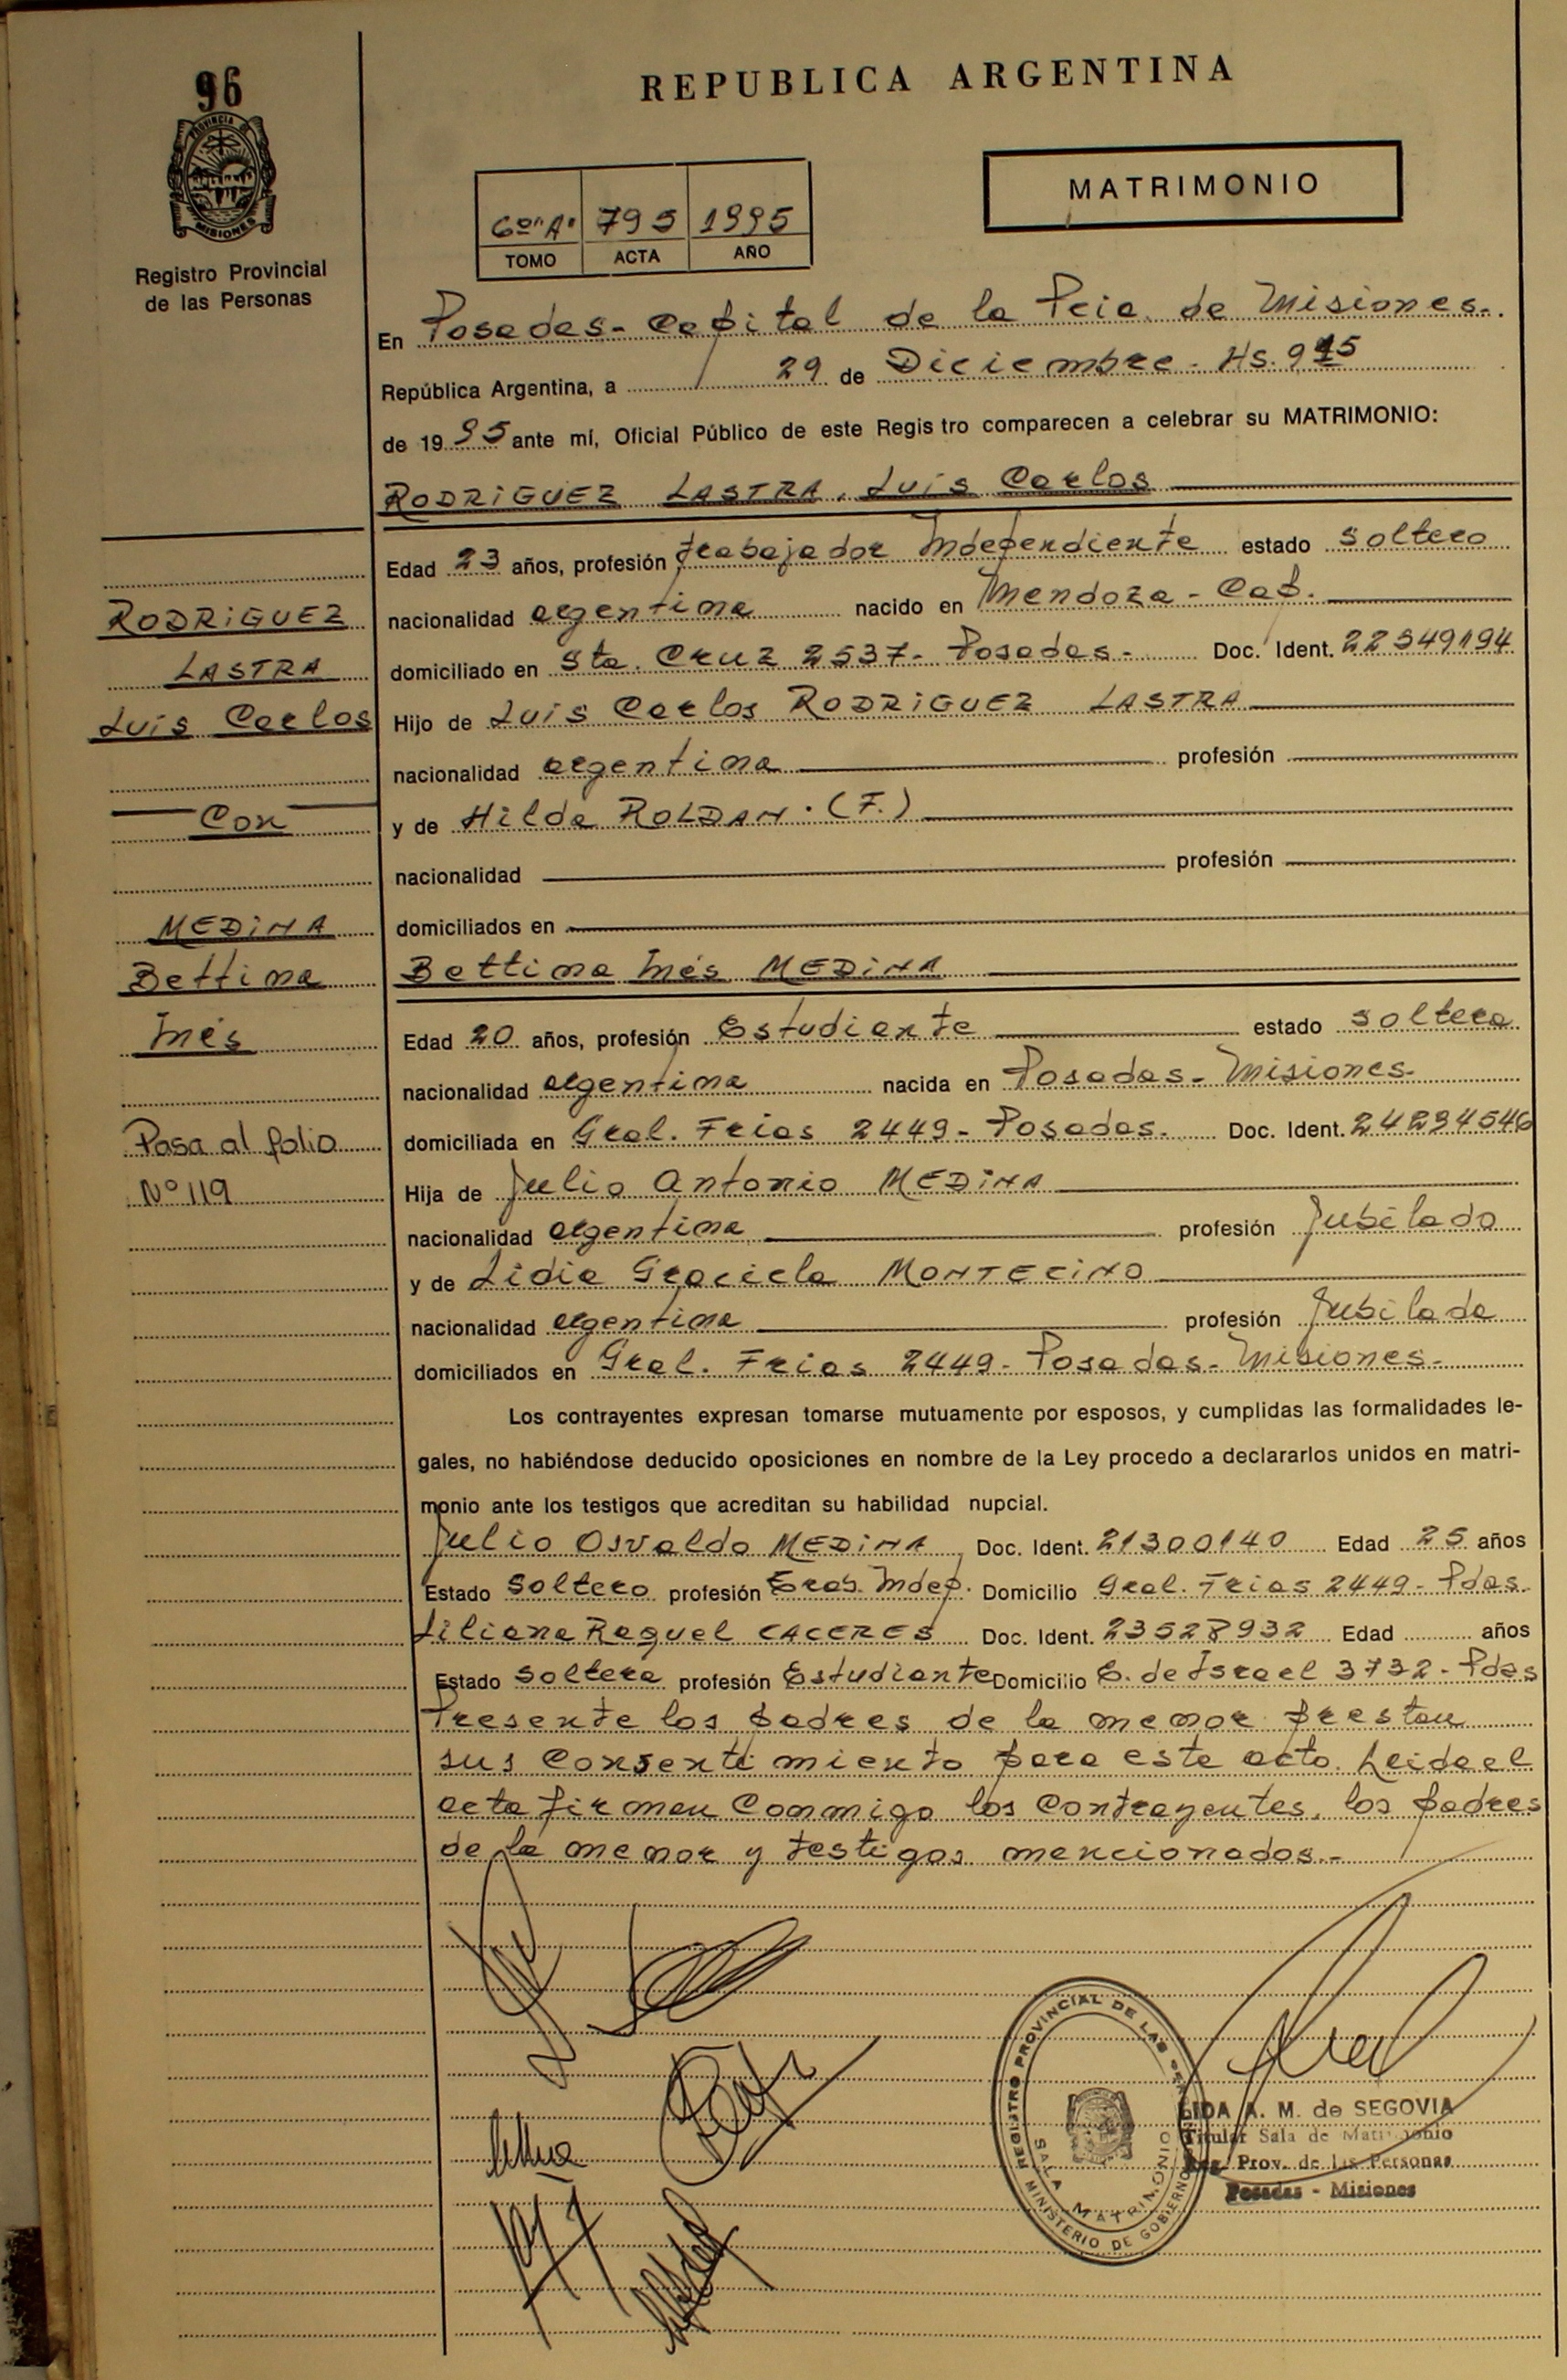 96
REPUBLICA ARGENTINA
PROVINCIA DE
MISIONES
Registro Provincial
de las Personas
MATRIMONIO
6º"A" 795 1995
TOMO ACTA AÑO
En Posadas- Capital de la Pcia. de Misiones-.
República Argentina, a 29 de Diciembre - Hs. 9 15
de 1995 ante mí, Oficial Público de este Registro comparecen a celebrar su MATRIMONIO:
RODRIGUEZ LASTRA, Luis Carlos
Edad 23 años, profesión trabajador Independiente estado soltero
nacionalidad argentina nacido en Mendoza - Cap.
domiciliado en Sta. Cruz 2537- Posadas- Doc. Ident. 22349194
Hijo de Luis Carlos RODRIGUEZ LASTRA
nacionalidad argentina profesión
y de Hilda ROLDAN. (F.)
nacionalidad profesión
domiciliados en
Bettina Inés MEDINA
Edad 20 años, profesión Estudiante estado soltera
nacionalidad argentina nacida en Posadas- Misiones-
domiciliada en Gral. Frias 2449- Posadas. Doc. Ident. 24294546
Hija de Julio Antonio MEDINA
nacionalidad argentina profesión Jubilado
y de Lidia Graciela MONTECINO
nacionalidad argentina profesión Jubilada
domiciliados en Gral. Frias 2449- Posadas- Misiones-
Los contrayentes expresan tomarse mutuamente por esposos, y cumplidas las formalidades le-
gales, no habiéndose deducido oposiciones en nombre de la Ley procedo a declararlos unidos en matri-
monio ante los testigos que acreditan su habilidad nupcial.
Julio Osvaldo MEDINA, Doc. Ident. 21300140 Edad 25 años
Estado soltero profesión Indep. Domicilio Gral. Frias 2449- Pdas.
Liliana Raquel CACERES Doc. Ident. 23528932 Edad años
Estado soltera profesión Estudiante Domicilio E. de Israel 3732- Pdas
Presente los padres de la menor prestan
sus Consentimiento para este acto. Leida el
acta firman Conmigo los Contrayentes, los padres
de la menor y testigos mencionados.-
RODRIGUEZ
LASTRA
Luis Carlos
Con
MEDINA
Bettina
Inés
Pasa al folio
Nº 119
REGISTRO PROVINCIAL DE LAS
SALA MATRIMONIO
MINISTERIO DE GOBIERNO
LIDA A. M. de SEGOVIA
Titular Sala de Matrimonio
Reg. Prov. de las Personas
Posadas - Misiones